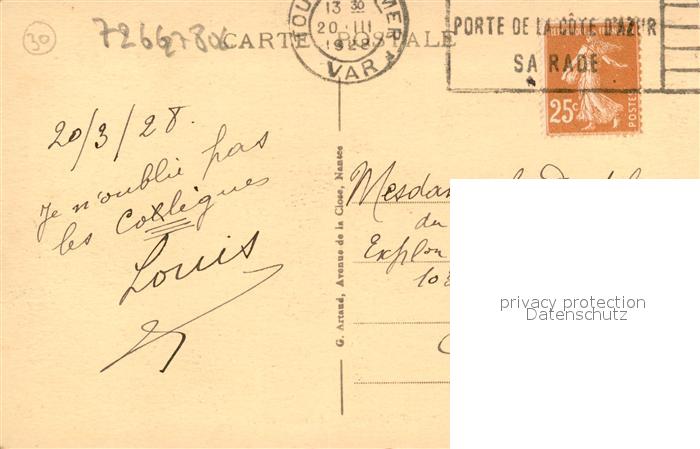 30
72667806
CARTE POSTALE
13 30
20 III
1928
VAR
PORTE DE LA CÔTE D'AZUR
SA RADE
25c
POSTES
20/3/28.
Je n'oublie pas
les collègues
Louis
G. Artaud, Avenue de la Close, Nantes
du
privacy protection
Datenschutz